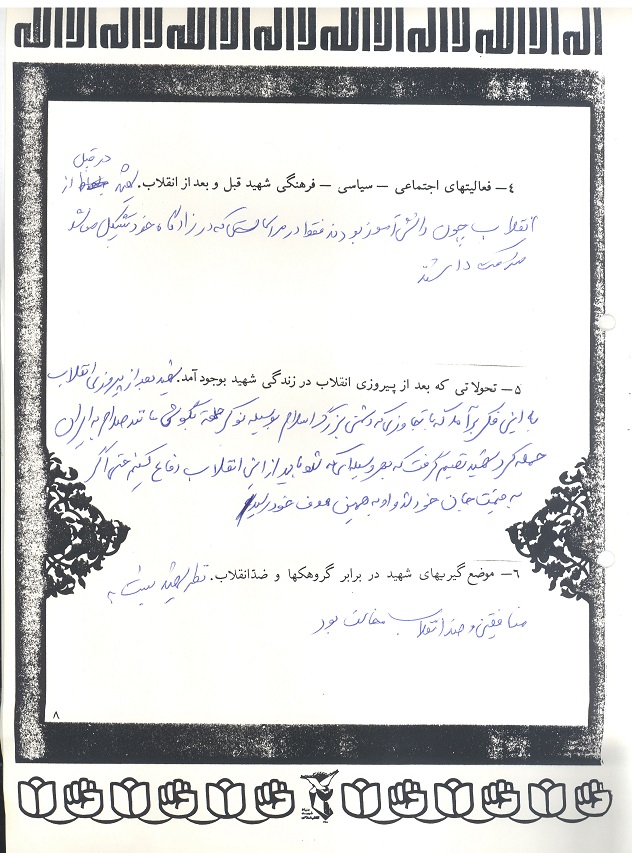 لااله الاالله لااله الاالله لااله الاالله لااله الاالله
در قبل
٤– فعالیتهای اجتماعی – سیاسی – فرهنگی شهید قبل و بعد از انقلاب. شهید از
انقلاب چون دانش آموز بودند فقط در مراسماتی که در زادگاه خود تشکیل می شد
شرکت داشتند
۵– تحولاتی که بعد از پیروزی انقلاب در زندگی شهید بوجود آمد. شهید بعد از پیروزی انقلاب
به این فکر برآمد که با تجاوزی که دشمن بزرگ اسلام بوسیله نوکر حلقه بگوشی مانند صدام به ایران
حمله کرد شهید تصمیم گرفت که بهر وسیله ای که شده باید از این انقلاب دفاع کنیم حتی اگر
به قیمت جان خود شد و او به همین هدف خود رسید
٦– موضع گیریهای شهید در برابر گروهکها و ضدّانقلاب. نظر شهید نسبت به
منافقین و ضد انقلاب مخالف بود
۸